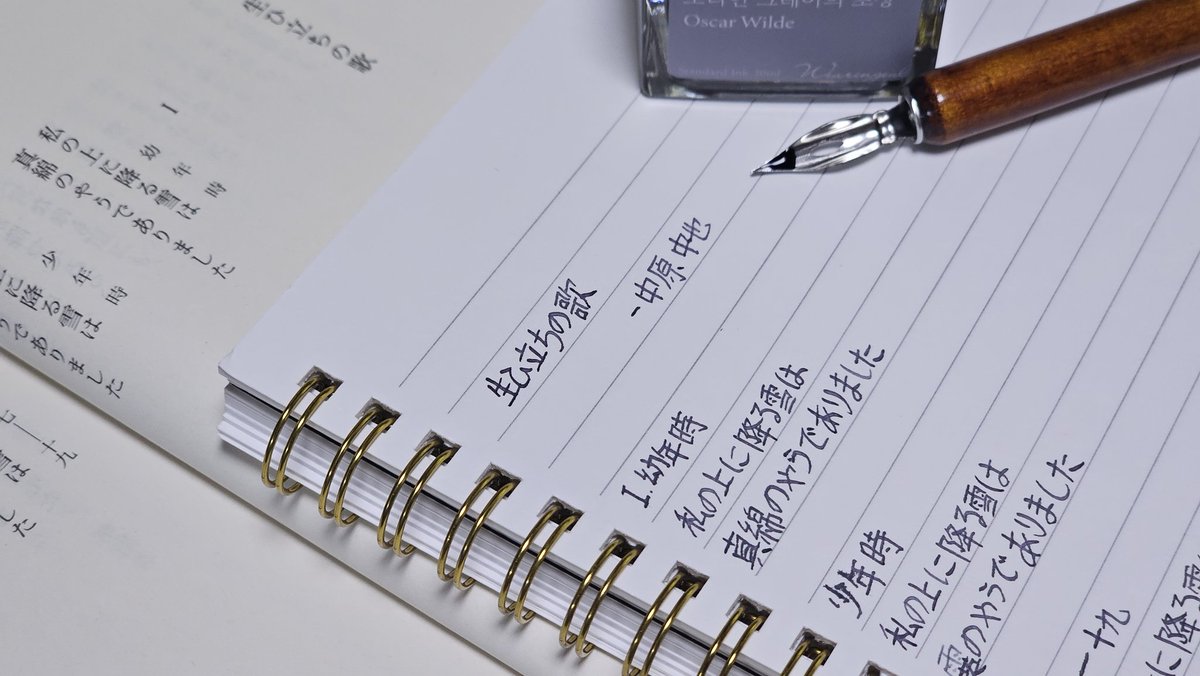 生ひ立ちの歌
I
幼年時
私の上に降る雪は
真綿のやうでありました
少年時
に降る雪は
うでありました
七―十九
雪は
した
Oscar Wilde
生ひ立ちの歌
- 中原中也
I. 幼年時
私の上に降る雪は
真綿のやうでありました
少年時
私の上に降る雪は
霙のやうでありました
一十九
に降る雪